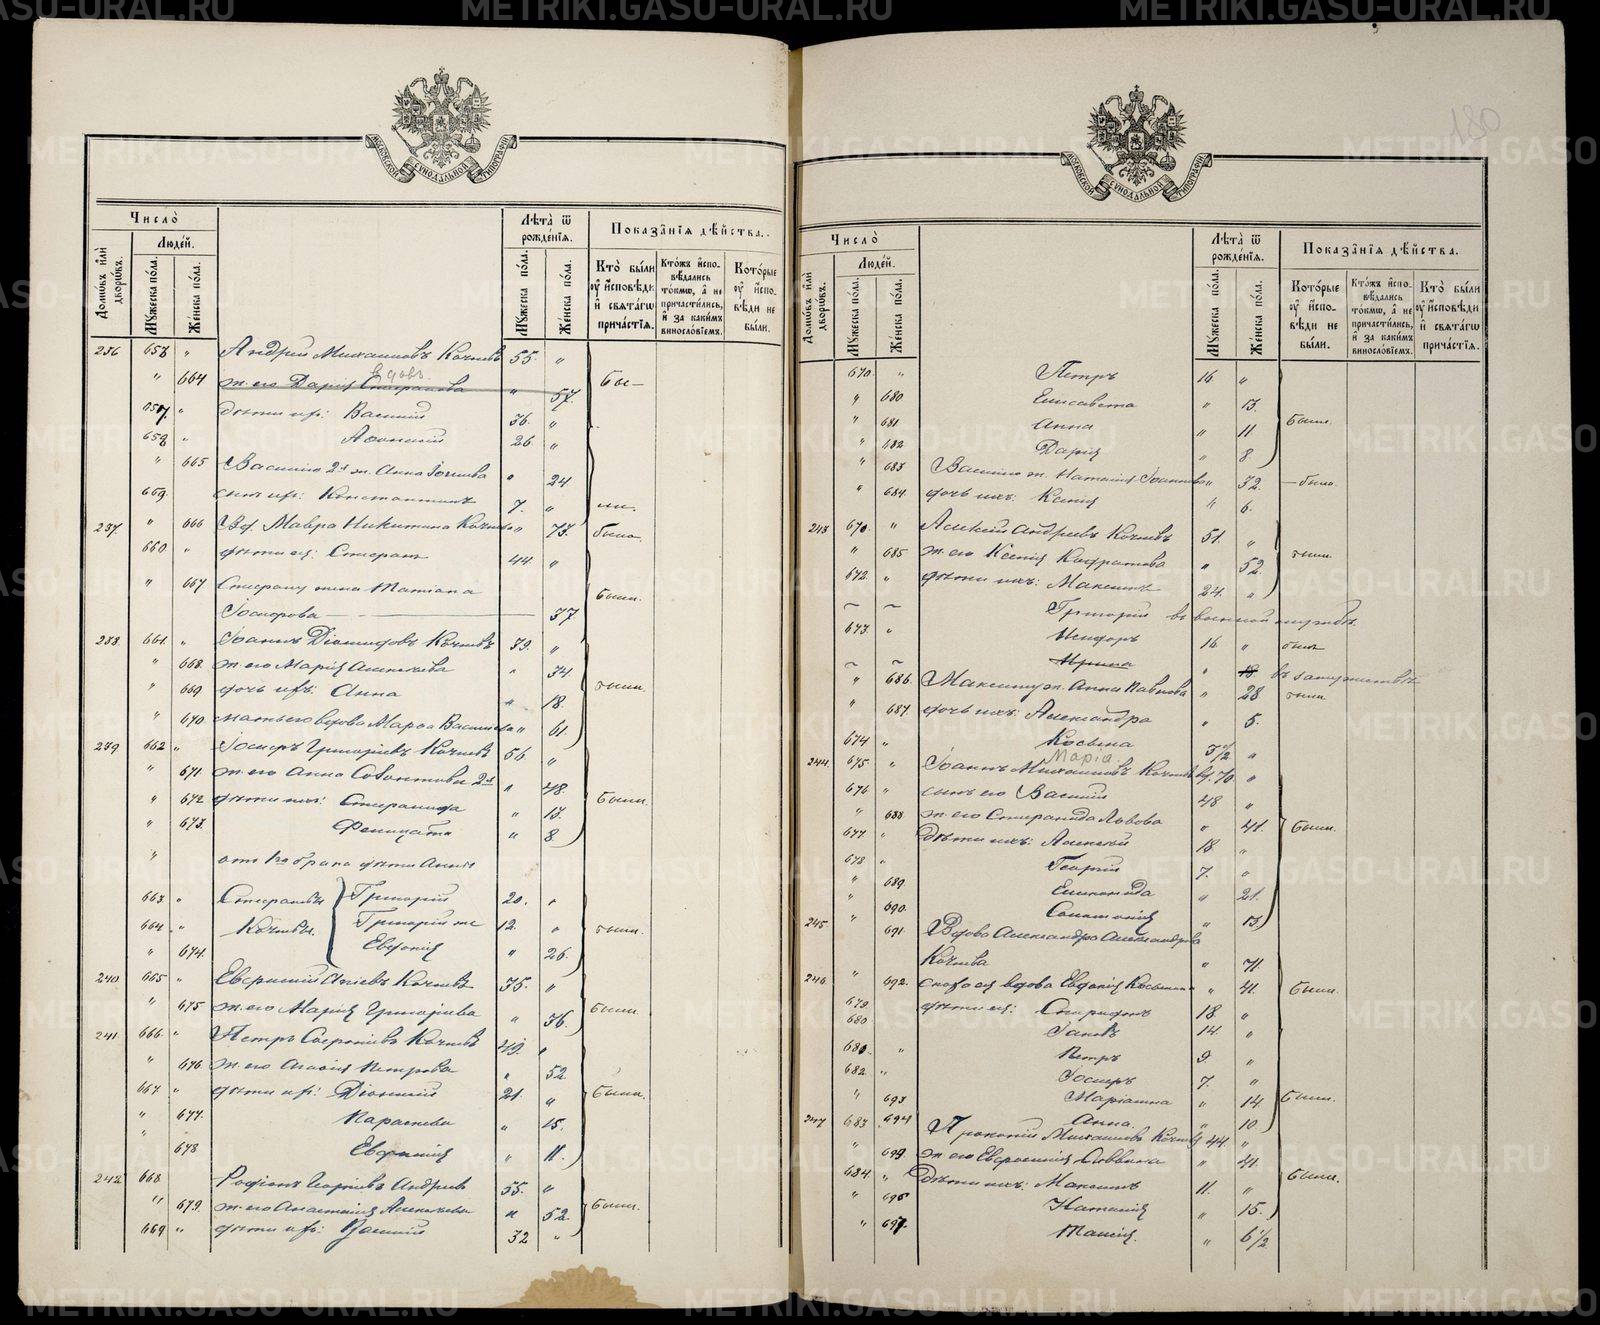 METRIKI.GASO-URAL.RU
180
МОСКОВСКОЙ СѴНОДАЛЬНОЙ ТИПОГРАФІИ
Число
Домѡвъ или дворѡвъ.
Людей.
Мужеска пола.
Женска пола.
Лѣта ѿ рожденія.
Мужеска пола.
Женска пола.
Показанія дѣйства.
Кто были оу исповѣди и свѧтагѡ причастія.
Ктожъ исповѣдались токмѡ, а не причастились, и за какимъ винословіемъ.
Которые оу исповѣди не были.
236 656 " Андрей Михаиловъ Кочневъ 55. "
вдовъ
" 664 ж. его Дарія Стефанова " 57.
657. " дѣти их: Василій 36. "
658 " Афанасій 26. "
" 665 Василію 2я ж. Анна " 24
659. сынъ их: Константинъ 7. "
237. " 666 Вд. Мавра Никитина Кочнева " 73. была.
660. " дѣти ея: Стефанъ 44. "
" 667 Стефану жена Татіана были.
Іосифова 37
238. 661. " Іоаннъ Діомидовъ Кочневъ 39. "
" 668. ж. его Марія Алексѣева " 34
" 669 дочь их: Анна " 18 были.
" 670. мать его вдова Марѳа Василіева " 61
239 662 " Іосифъ Григоріевъ Кочневъ 56. "
" 671. ж. его Анна 2я " 48.
" 672 дѣти ихъ: Стефанида " 13. были.
" 673. Фелицата " 8
" отъ 1го брака дѣти Анны
663 " Стефановы Григорій 20. "
664. " Кочневы. Григорій же 12. " были.
" 674. Евдокія " 26.
240. 665 " Кочневъ 35. "
" 675 ж. его Марія Григоріева " 36. были.
241. 666. " Петръ Кочневъ 49. "
" 676 ж. его Петрова " 52
667 " дѣти их: Діонисій 21. " были.
" 677. Параскева " 15.
" 678 Евфимія " 11.
242 668 Родіонъ Андреев 55. "
" 679. ж. его Анастасія Алексѣева " 52. были.
669 " дѣти их: Василій 32 "
Число
Домѡвъ или дворѡвъ.
Людей.
Мужеска пола.
Женска пола.
Лѣта ѿ рожденія.
Мужеска пола.
Женска пола.
Показанія дѣйства.
Которые оу исповѣди не были.
Ктожъ исповѣдались токмѡ, а не причастились, и за какимъ винословіемъ.
Кто были оу исповѣди и свѧтагѡ причастія.
670. " Петръ 16. "
" 680 Елисавета " 13.
" 681 Анна " 11 были.
" 682 Дарія " 8
" 683 Василію ж. Наталія Іоаннова " 32. была.
" 684. дочь ихъ: Ксенія " 6.
243 670. " Алексій Андреевъ Кочневъ 51. "
" 685 ж. его Ксенія " 52. были.
672. " дѣти ихъ: Максимъ 24. "
Григорій въ военной службѣ.
673. " Исидоръ 16. " былъ
Ирина " 18 въ замужествѣ
" 686. Максиму ж. Анна Павлова " 28 были.
" 687. дочь ихъ: Александра " 5.
674 " Косьма 3 1/2 "
Марія
244. 675 " Іоаннъ Михаиловъ Кочневъ вд. 70. "
676 " сынъ его Василій 48 "
" 688 ж. его Стефанида Львова " 41. были.
677. " Дѣти ихъ: Алексій 18. "
678. " Георгій 7. "
" 689. " 21.
" 690. " 13
245 " 691 Вдова Александра Александрова
Кочнева " 71
246 " 692. сноха ея вдова Евдокія Косьмина " 41. были.
679 дѣти ея: Спиридонъ 18 "
680 Іаковъ 14 "
680. " Петръ 9. "
682. " Іосифъ 7. "
" 693 Маріанна " 14. были.
694 Анна " 10.
247 683 Прокопій Михаиловъ Кочневъ 44. "
" 699. ж. его Евфросинія Саввина " 41.
684. " Дѣти ихъ: Максимъ 11. " были.
" 696 Наталія " 15.
" 697. Таисія. " 6 1/2